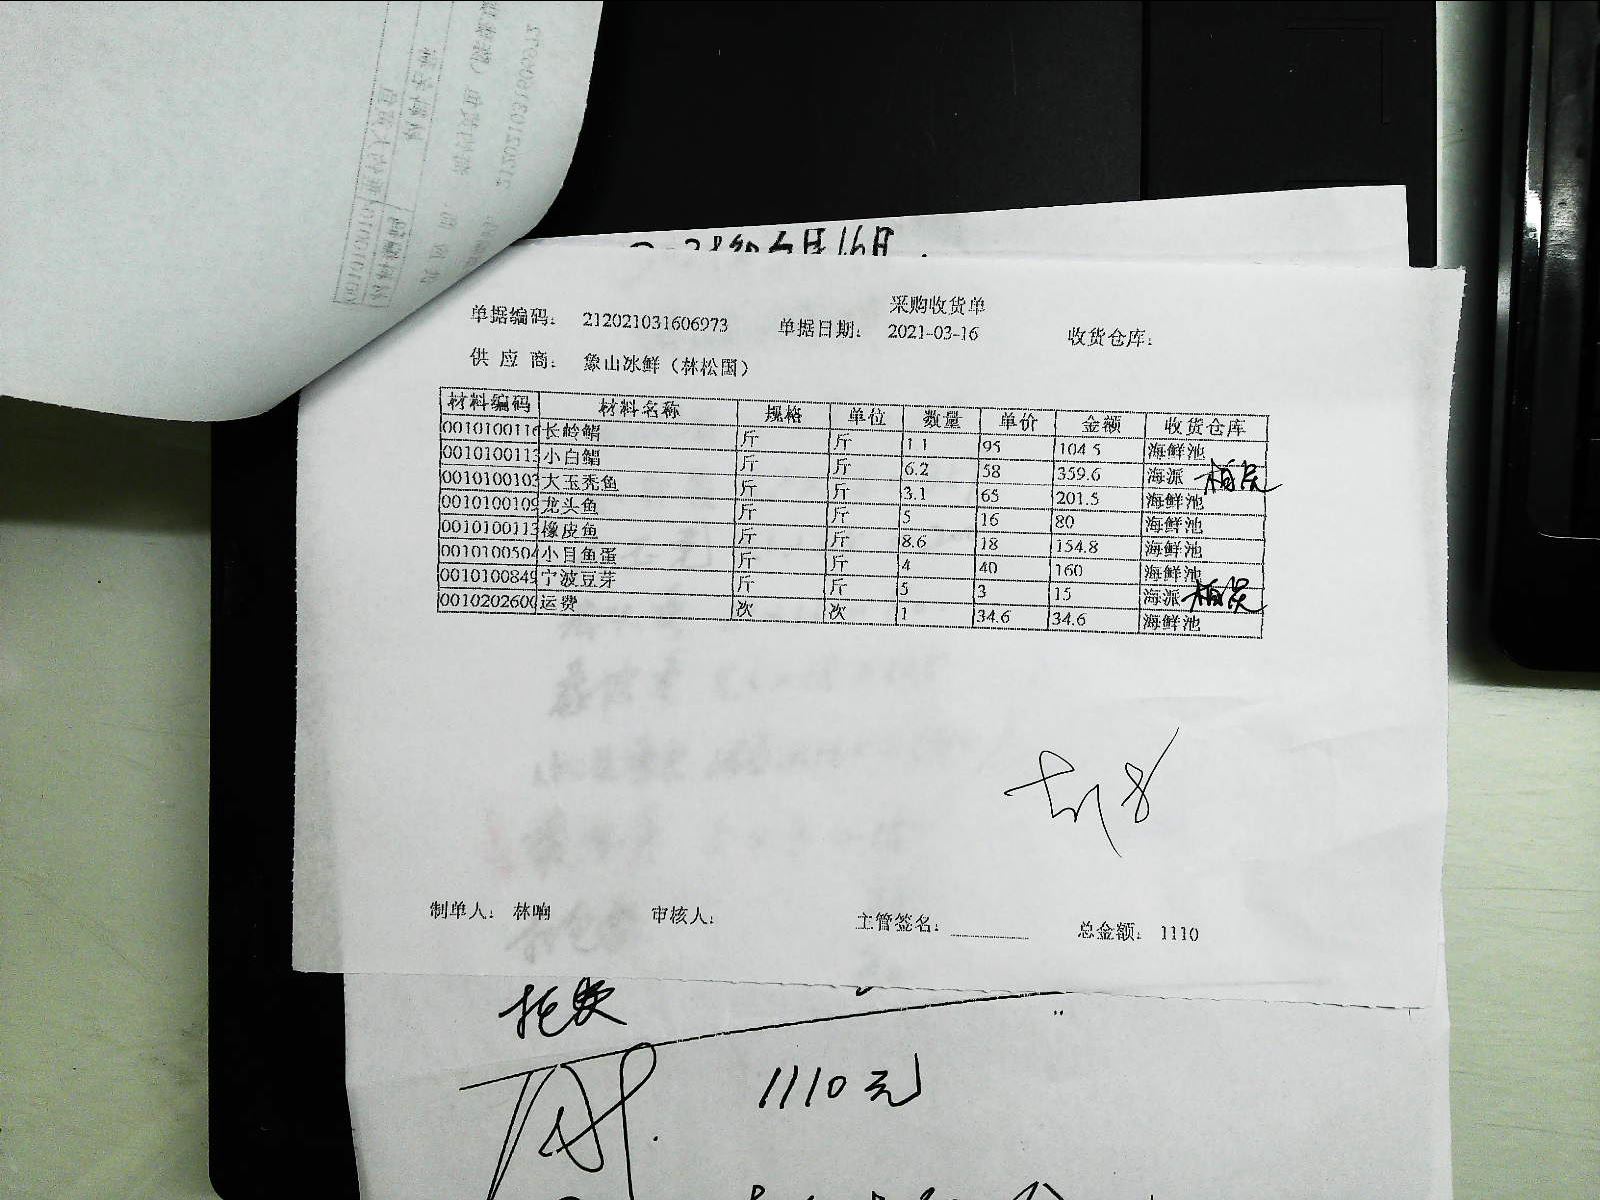 采购收货单
单据编码： 212021031606973 单据日期： 2021-03-16 收货仓库：
供 应 商： 象山冰鲜（林松国）
材料编码 材料名称 规格 单位 数量 单价 金额 收货仓库
0010100116 长岭鲳 斤 斤 1.1 95 104.5 海鲜池
0010100113 小白鲳 斤 斤 6.2 58 359.6 海派
0010100103 大玉秃鱼 斤 斤 3.1 65 201.5 海鲜池
0010100109 龙头鱼 斤 斤 5 16 80 海鲜池
0010100113 橡皮鱼 斤 斤 8.6 18 154.8 海鲜池
0010100504 小目鱼蛋 斤 斤 4 40 160 海鲜池
0010100849 宁波豆芽 斤 斤 5 3 15 海派
0010202600 运费 次 次 1 34.6 34.6 海鲜池
制单人： 林响 审核人： 主管签名： 总金额： 1110
托费
1110元